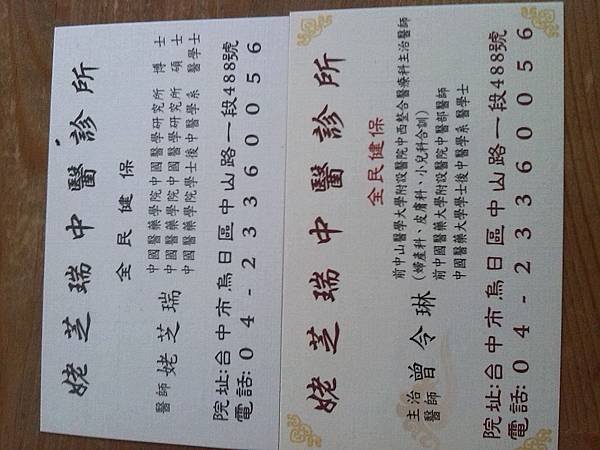 姥芝瑞中醫診所
全民健保
中國醫藥學院中國醫學研究所 博士
中國醫藥學院中國醫學研究所 碩士
中國醫藥學院學士後中醫學系 醫學士
醫師 姥芝瑞
院址:台中市烏日區中山路一段488號
電話:04-23360056
姥芝瑞中醫診所
全民健保
前中山醫學大學附設醫院中西整合醫療科主治醫師
(婦產科、皮膚科、小兒科合訓)
前中國醫藥大學附設醫院中醫部醫師
中國醫藥大學學士後中醫學系 醫學士
主治醫師 曾令琳
院址:台中市烏日區中山路一段488號
電話:04-23360056